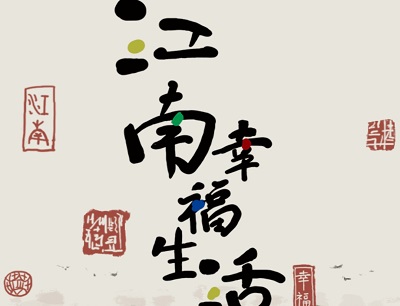 江南
幸福
生活
江南
幸福